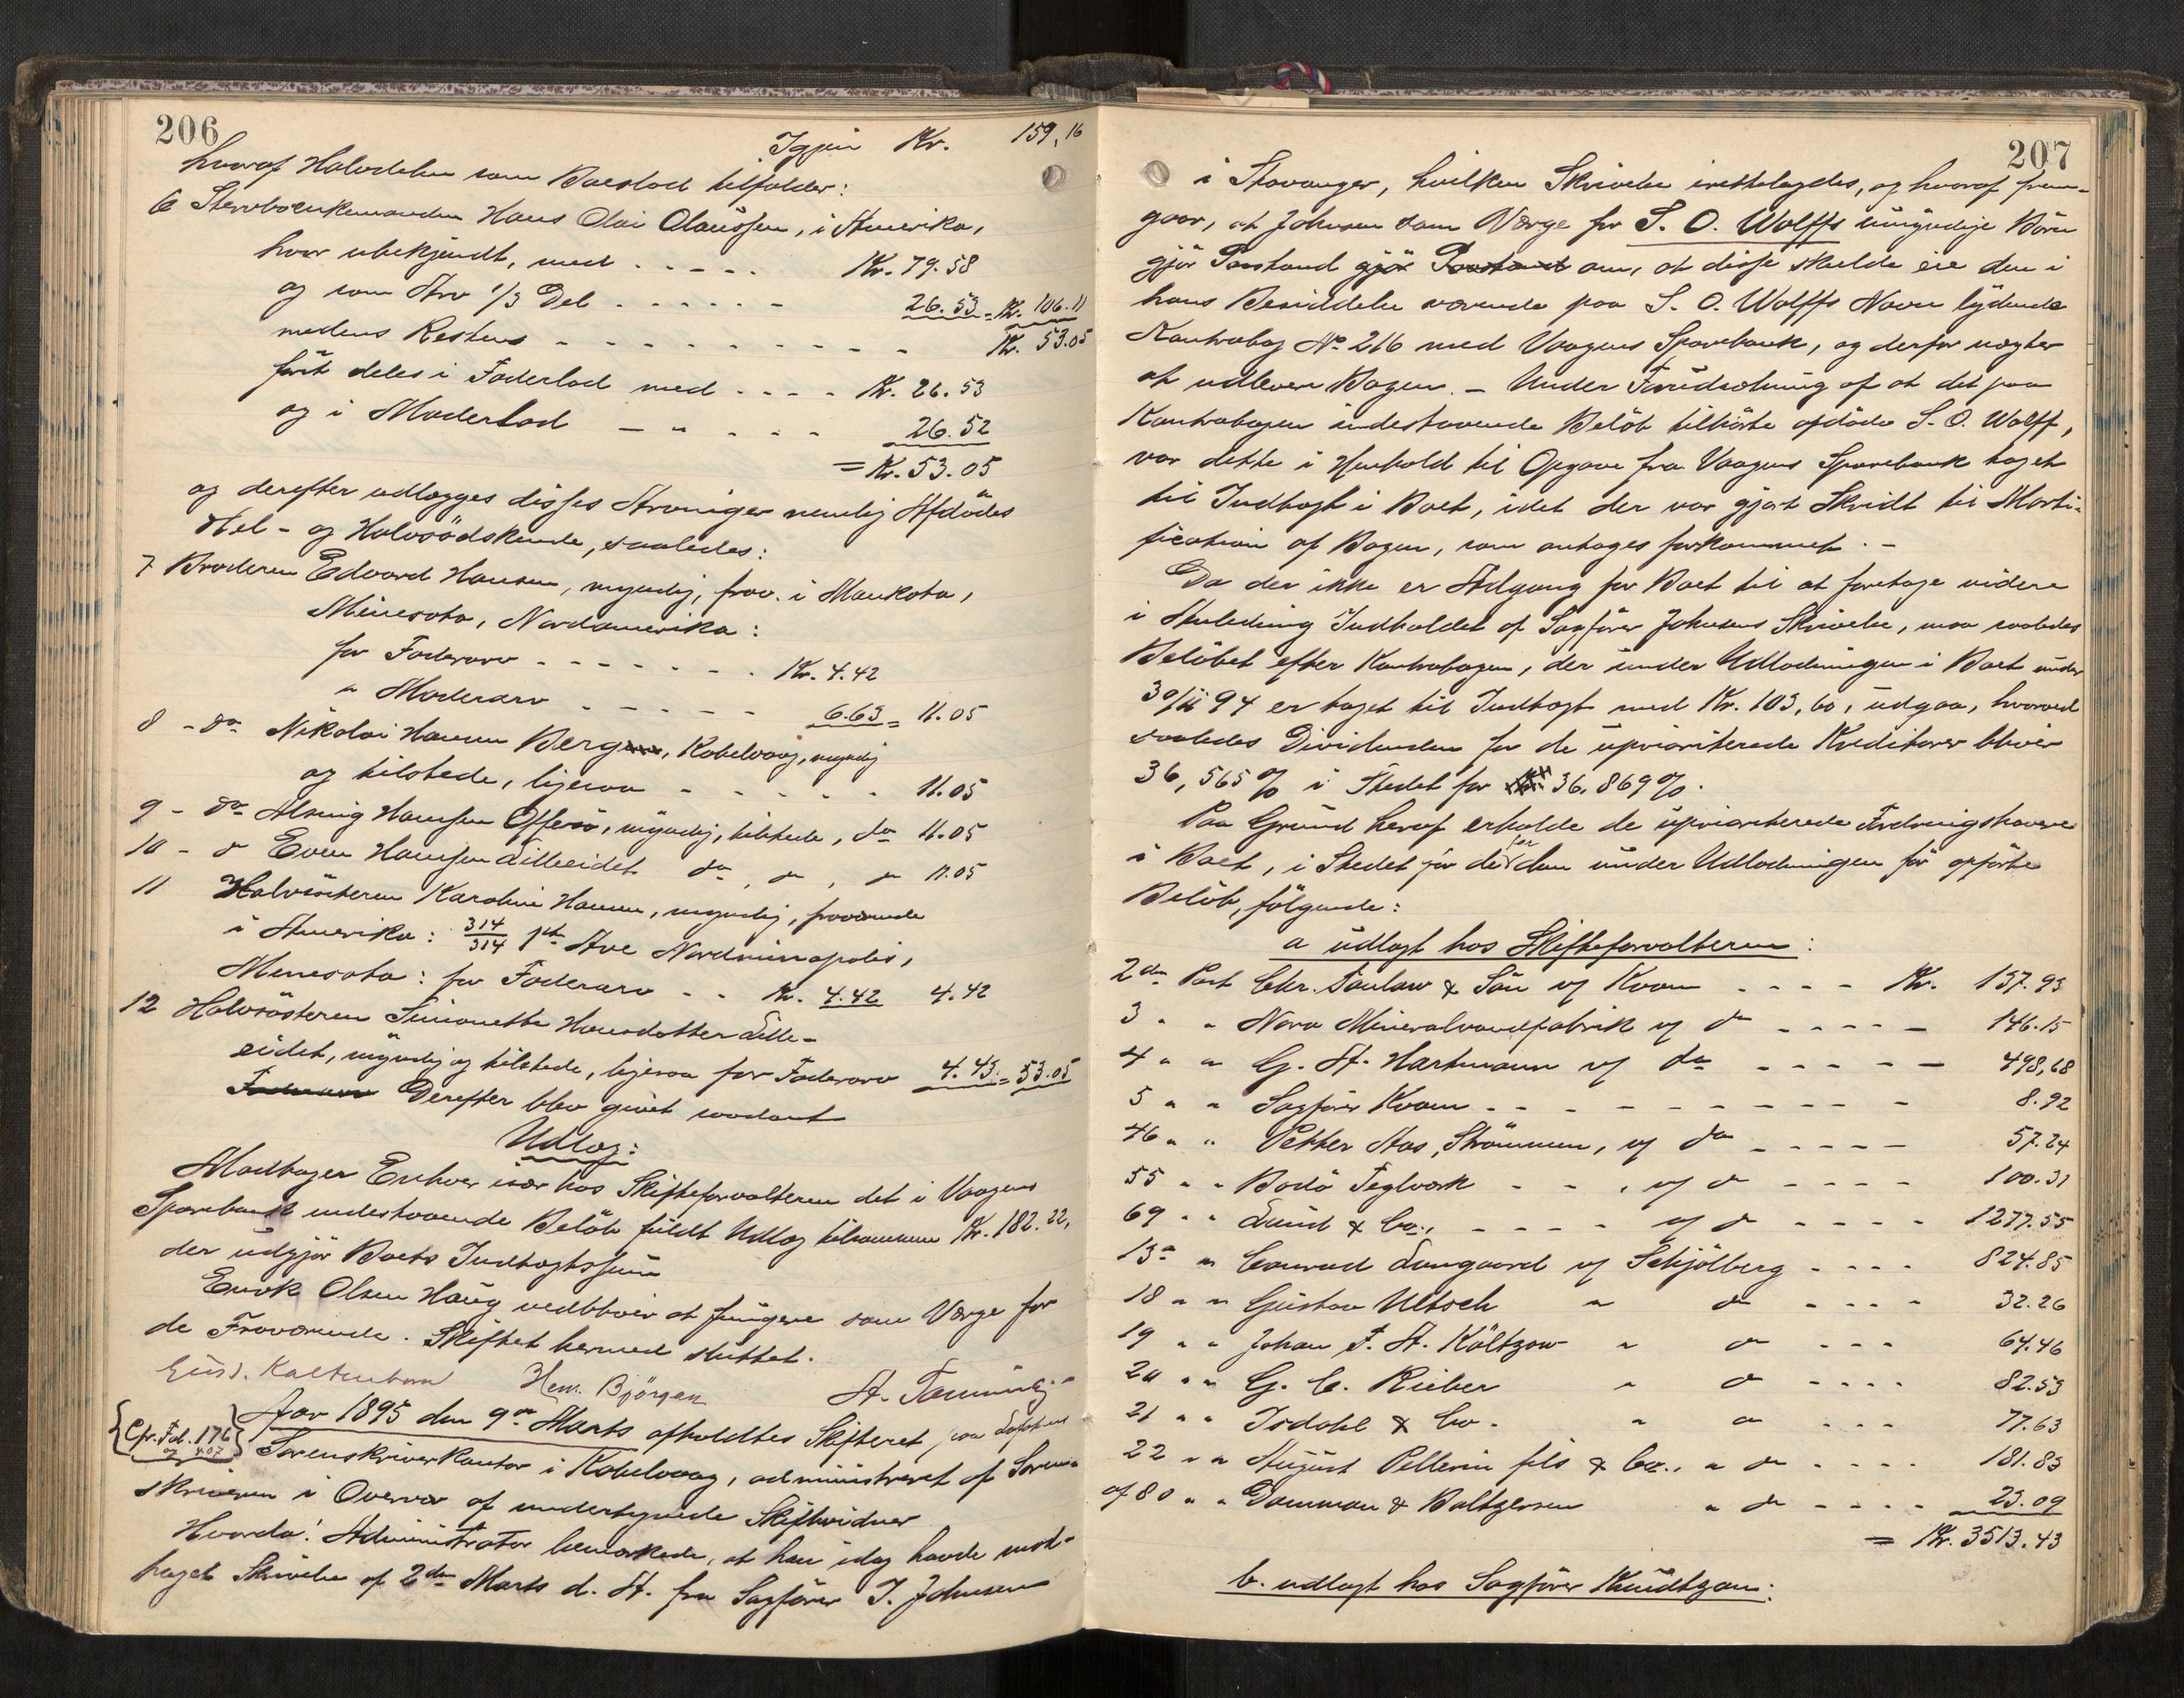 206
Igjen Kr. 159,16
hvoraf Halvdelen som Boeslod tilfalder:
6 Stervboenkemanden Hans Olai Olaussen, i Amerika,
hvor ubekjendt, med - - - - - Kr. 79.58
og som Arv 1/3 Del - - - - - - 26.53 = Kr. 106.11
medens Resten - - - - - - - - - Kr. 53.05
först deles i Faderlod med - - - - Kr. 26.53
og i Moderlod - - - - - 26.52
= Kr. 53.05
og derefter udlægges disses Arvinger nemlig Afdödes
Hel- og Halvsödskende, saaledes:
7 Broderen Edvard Hansen, myndig, frav. i Mankota,
Minesota, Nordamerika:
for Faderarv - - - - - - - Kr. 4.42
" Moderarv - - - - - 6.63 = 11.05
8 - do Nikolai Hansen Berg, Kabelvaag, myndig
og tilstede, ligesaa - - - - - 11.05
9 - do Alming Hansen Offersö, myndig, tilstede, do 11.05
10 - d Even Hansen Lilleeidet do, do, do 11.05
11 Halvsösteren Karoline Hansen, myndig, fraværende
i Amerika: 314/314 1st Ave Nordminapolis,
Minesota: for Faderarv - - Kr. 4.42 4.42
12 Halvsösteren Simonette Hansdatter Lille-
eidet, myndig og tilstede, ligesaa for Faderarv 4.43 = 53.05
Derefter blev givet saadant
Udlæg:
Modtager Enhver især hos Skifteforvalteren det i Vaagens
Sparebank indestaaende Belöb fuldt Udlæg tilsammen Kr. 182.22,
der udgjör Boets Indtægtssum
Enok Olsen Haug vedbliver at fungere som Værge for
de Fraværende. Skiftet hermed sluttet.
Gust. Kaltenborn Hem. Björgan A. Tønning
{Cfr. Fol. 176 og 407} Aar 1895 den 9de Marts afholdtes Skifteret paa Lofotens
Sorenskriverkontor i Kabelvaag, administreret af Soren-
skriveren i Overvær af undertegnede Skiftevidner
Hvorda: Administrator bemærkede, at han idag havde mod-
taget Skrivelse af 2den Marts d. A. fra Sagförer J. Johnsen
207
i Stavanger, hvilken Skrivelse irettelagdes, og hvoraf frem-
gaar, at Johnsen som Værge for S. O. Wolffs umyndige Börn
gjör Paastand gjör Paastand om, at disse skulde eie den i
hans Besiddelse værende paa S. O. Wolffs Navn lydende
Kontrabog No 216 med Vaagens Sparebank, og derfor nægter
at udlevere Bogen. - Under Forudsætning af at det paa
Kontrabogen indestaaende Belöb tilhörte afdöde S. O. Wolff,
var dette i Henhold til Opgave fra Vaagens Sparebank taget
til Indtægt i Boet, idet der var gjort Skridt til Morti-
fication af Bogen, som antoges forkommet. -
Da der ikke er Adgang for Boet til at foretage videre
i Anledning Indholdet af Sagförer Johnsens Skrivelse, maa saaledes
Belöbet efter Kontrabogen, der under Udlodningen i Boet under
30/11 94 er taget til Indtægt med Kr. 103,60, udgaa, hvorved
saaledes Dividenden for de upriariterede Kreditorer bliver
36,565 % i Stedet for 36,869 %.
Paa Grund heraf erholde de upriariterede Fordringshavere
i Boet, i Stedet for de for dem under Udlodningen för opförte
Belöb, følgende:
a udlagt hos Skifteforvalteren:
2den Post Chr. Taulow & Sön vf Kvam - - - - Kr. 137.93
3 " " Nora Mineralvandfabrik vf do - - - - - 146.15
4 " " G. A. Hartmann vf do - - - - - 498,68
5 " " Sagförer Kvam - - - - - - - - - - 8.92
46 " " Petter Aas, Strömmen, vf do - - - - - 57.24
55 " " Bodö Teglværk - - , vf do - - - - 100.31
69 " " Lund & Co., - - - - vf do - - - - 1277.55
13 " " Conrad Langaard vf Schjölberg - - - - 824.85
18 " " Gustav Ultsch " do - - - - 32.26
19 " " Johan F. A. Költzow " do - - - 64.46
20 " " G. C. Rieber " do - - - - 82.53
21 " " Isdahl & Co. " do - - - 77.63
22 " " August Pellerin fils & Co., " do - - - - 181.83
af 80 " " Damman & Baltzersen " do - - - - 23.09
= Kr. 3513.43
b. udlagt hos Sagförer Knudtzon: